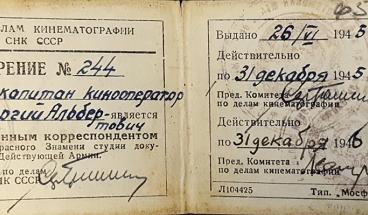 ДЕЛАМ КИНЕМАТОГРАФИИ
СНК СССР
РЕНИЕ № 244
капитан кинооператор
ргий Альбер- является
тович
нным корреспондентом
расного Знамени студии доку-
Действующей Армии.
по делам
НК СССР
Выдано 26/VI 1945
Действительно
по 31 декабря 1945
Пред. Комитета
по делам кинематографии
Действительно
по 31 декабря 1946
Пред. Комитета
по делам кинематографии
Л104425 Тип. „Мосф